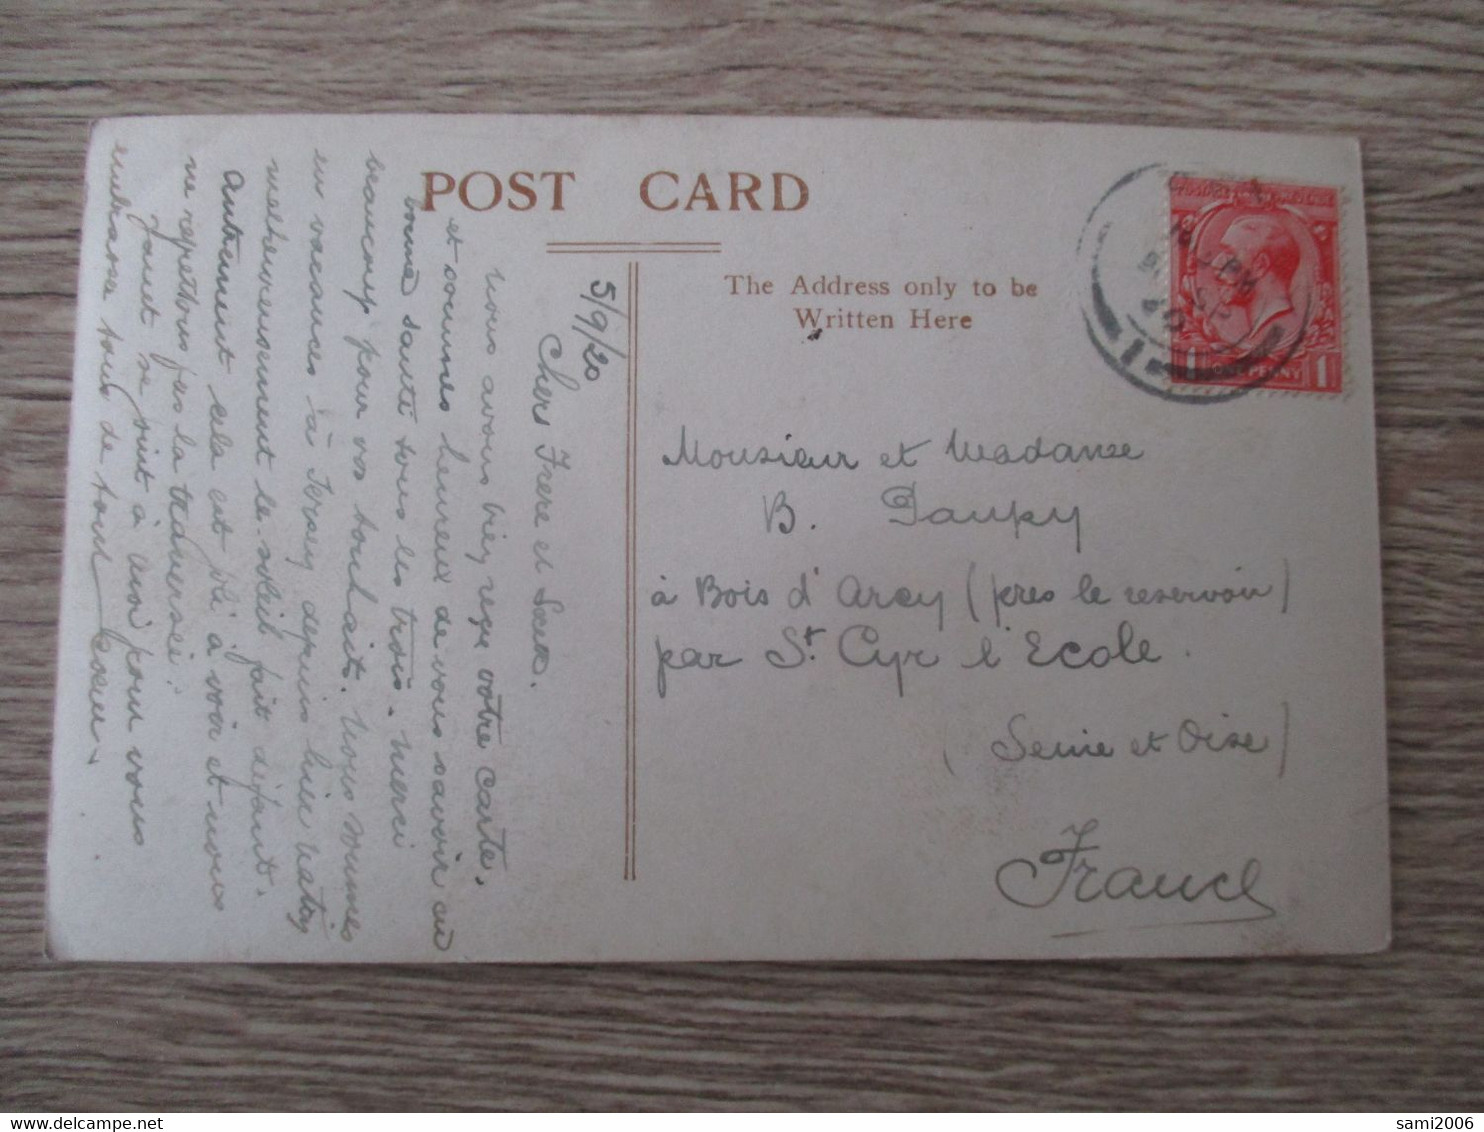 POST CARD
The Address only to be
Written Here
POSTAGE REVENUE
1 ONE PENNY 1
5/9/20
Chers Frere et Soeur.
Nous avons bien reçu votre carte.
et sommes heureux de vous savoir en
bonne santé tous les trois. Merci
beaucoup pour vos souhaits. Nous sommes
en vacances à Jersey depuis hier matin
malheureusement le soleil fait défaut.
Autrement cela est joli à voir et nous
ne regrettons pas la traversée.
Janet se joint à moi pour vous
embrasser tous de tout coeur.
Monsieur et Madame
B. Paupy
à Bois d'Arcy (pres le reservoir)
par St. Cyr l'Ecole.
(Seine et Oise)
France
sami2006